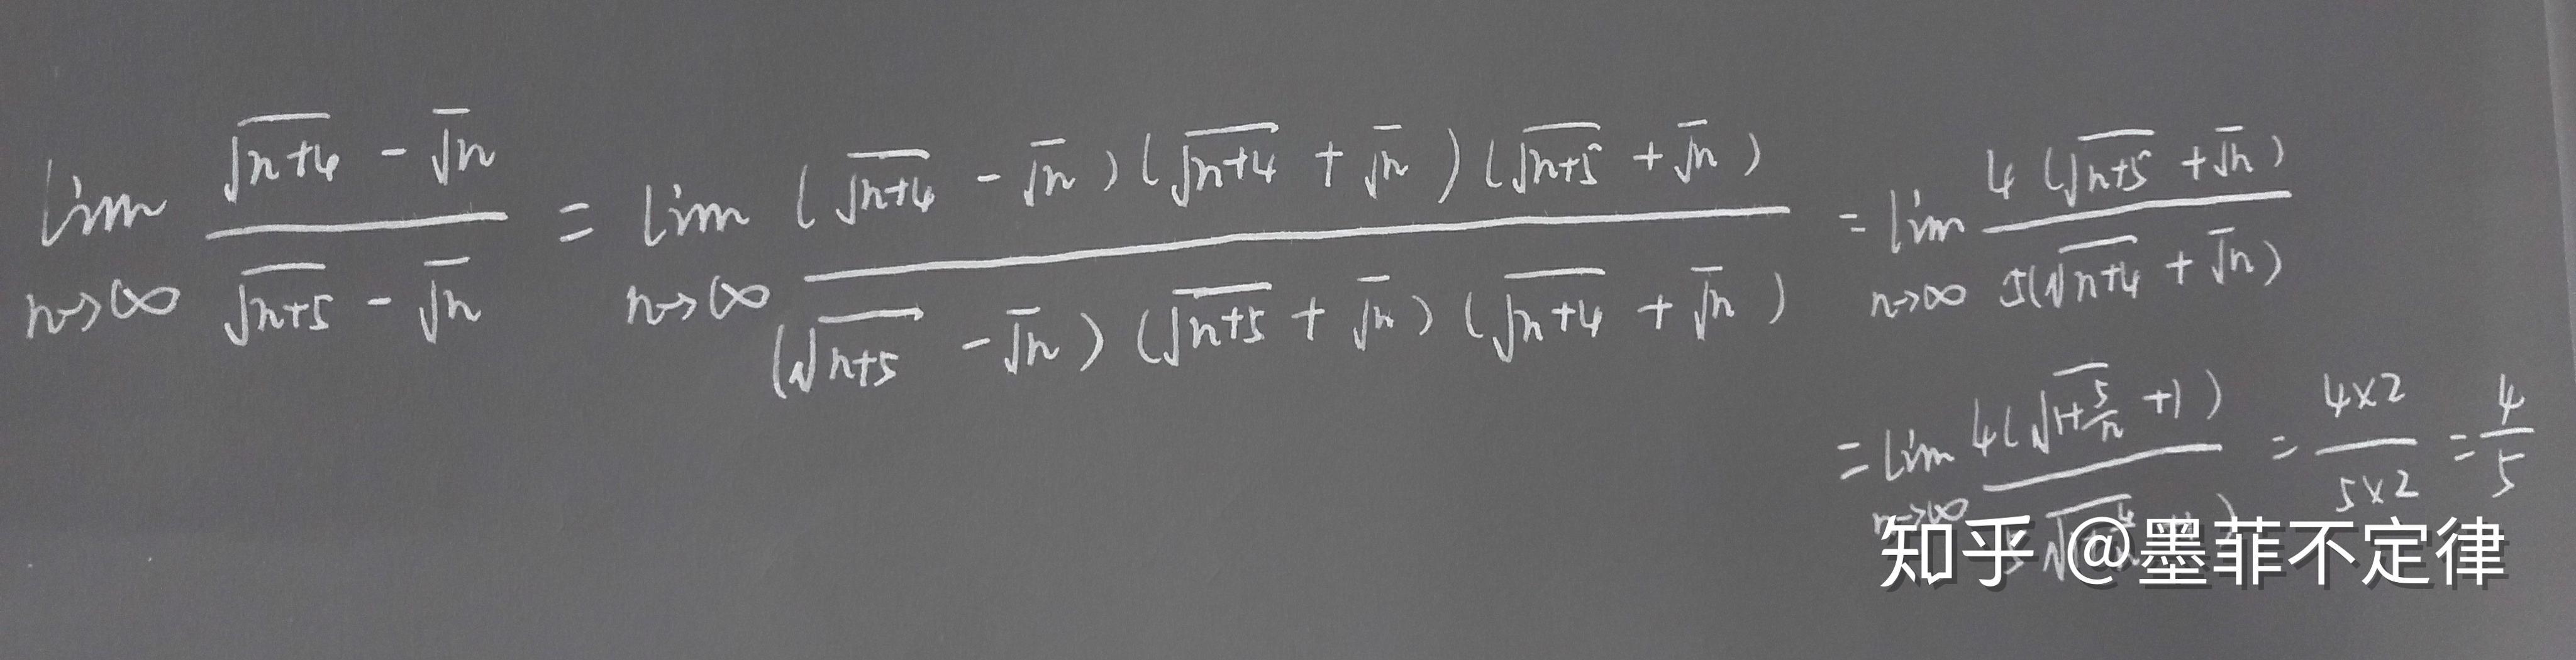 lim n→∞ (√(n+4) - √n)/(√(n+5) - √n) = lim n→∞ ((√(n+4) - √n)(√(n+4) + √n)(√(n+5) + √n))/((√(n+5) - √n)(√(n+5) + √n)(√(n+4) + √n)) = lim n→∞ (4(√(n+5) + √n))/(5(√(n+4) + √n))
= lim n→∞ (4(√(1+5/n) +1))/(5 √ 4 ) = (4×2)/(5×2) = 4/5
知乎 @墨菲不定律